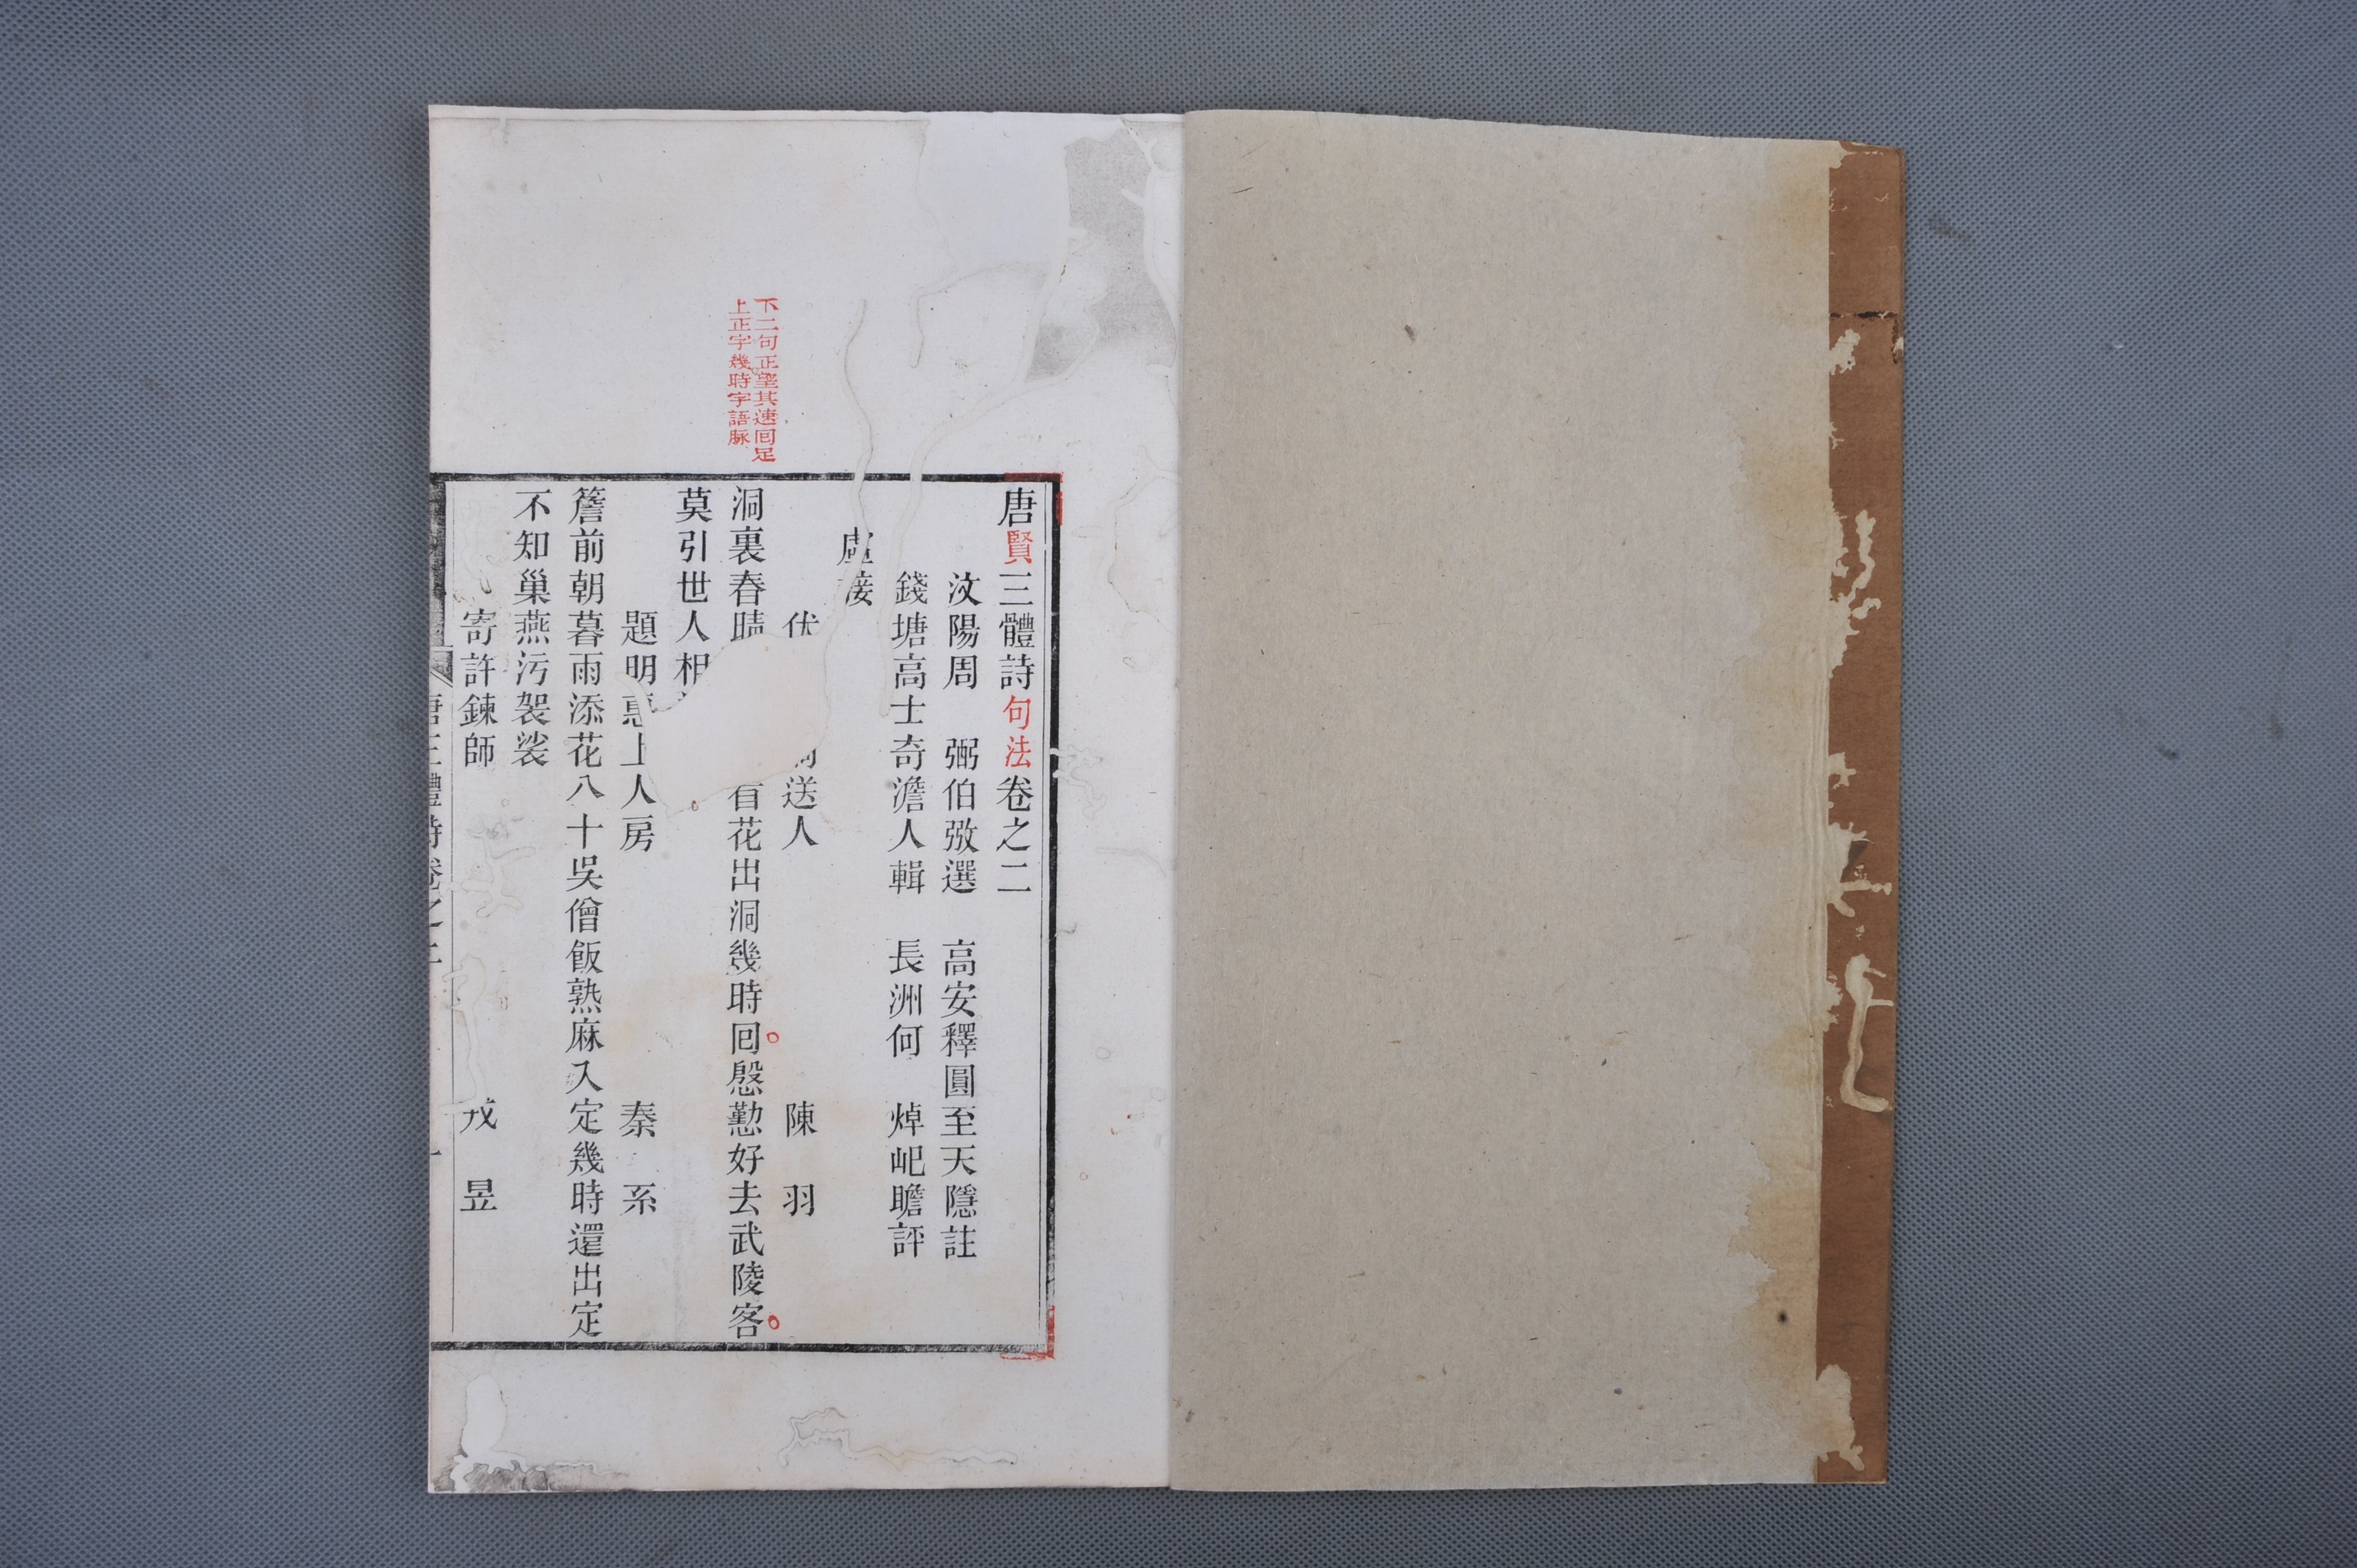 下二句正望其速囘足
上正字幾時字語脉
唐賢三體詩句法卷之二
汶陽周 弼伯弜選 高安釋圓至天隱註
錢塘高士奇澹人輯 長洲何 焯屺瞻評
虛接
伏 送人 陳 羽
洞裏春晴 看花出洞幾時囘慇懃好去武陵客
莫引世人相
題明惠上人房 秦 系
簷前朝暮雨添花八十吳僧飯熟麻入定幾時還出定
不知巢燕污袈裟
寄許鍊師 戎 昱
唐三體詩卷之二